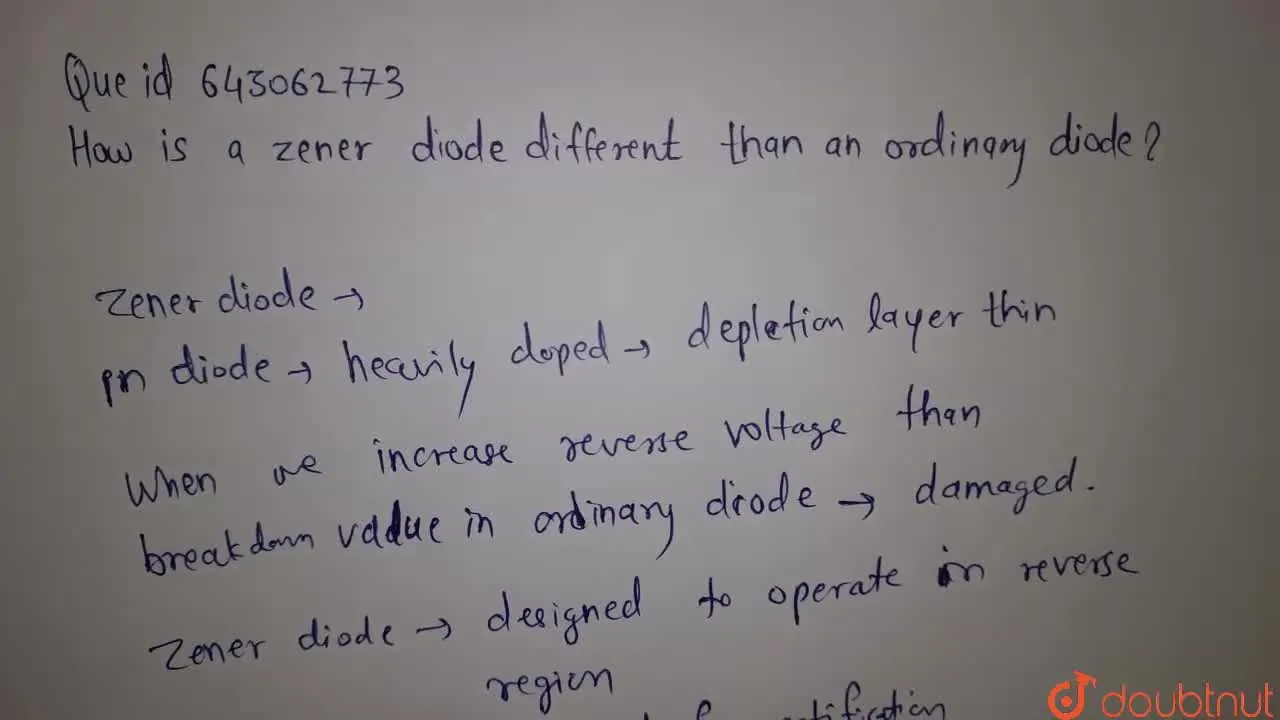 Que id 643062773
How is a zener diode different than an ordinary diode?
Zener diode →
pn diode → heavily doped → depletion layer thin
When we increase reverse voltage than
breakdown value in ordinary diode → damaged.
Zener diode → designed to operate in reverse
region
doubtnut